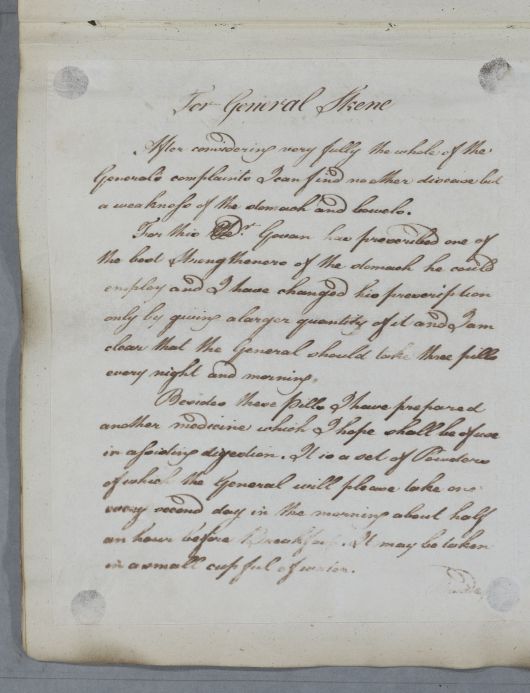 For General Skene
After considering very fully the whole of the
General's complaints I can find no other disease but
a weakness of the stomach and bowels.
For this Dr Govan has prescribed one of
the best strengtheners of the stomach he could
employ and I have changed his prescription
only by giving a larger quantity of it and I am
clear that the General should take three pills
every night and morning.
Besides these Pills I have prepared
another medicine which I hope shall be of use
in assisting digestion. It is a set of Powders
of which the General will please take one
every second day in the morning about half
an hour before Breakfast. It may be taken
in a small cupful of water.